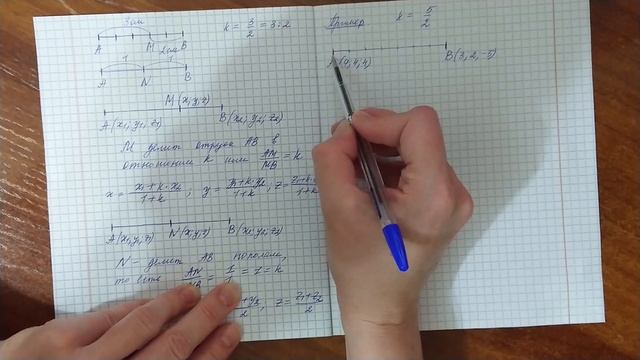 3см
k = 3/2 = 3:2
A M 2см B
1 1
A N B
M(x,y,z)
A(x₁, y₁, z₁) B(x₂; y₂; z₂)
M делит отрезок AB в
отношении k или AM/MB = k
x = (x₁+k·x₂)/(1+k) ; y = (y₁+k·y₂)/(1+k) ; z = (z₁+k·
1+k
A(x₁,y₁,z₁) N(x,y,z) B(x₂,y₂,z₂)
N - делит AB пополам,
то есть AN/NB = 1/1 = 1 = k
+y₂/2, z = (z₁+z₂)/2
Пример k = 5/2
(9,4,4) B(3,2,-5)